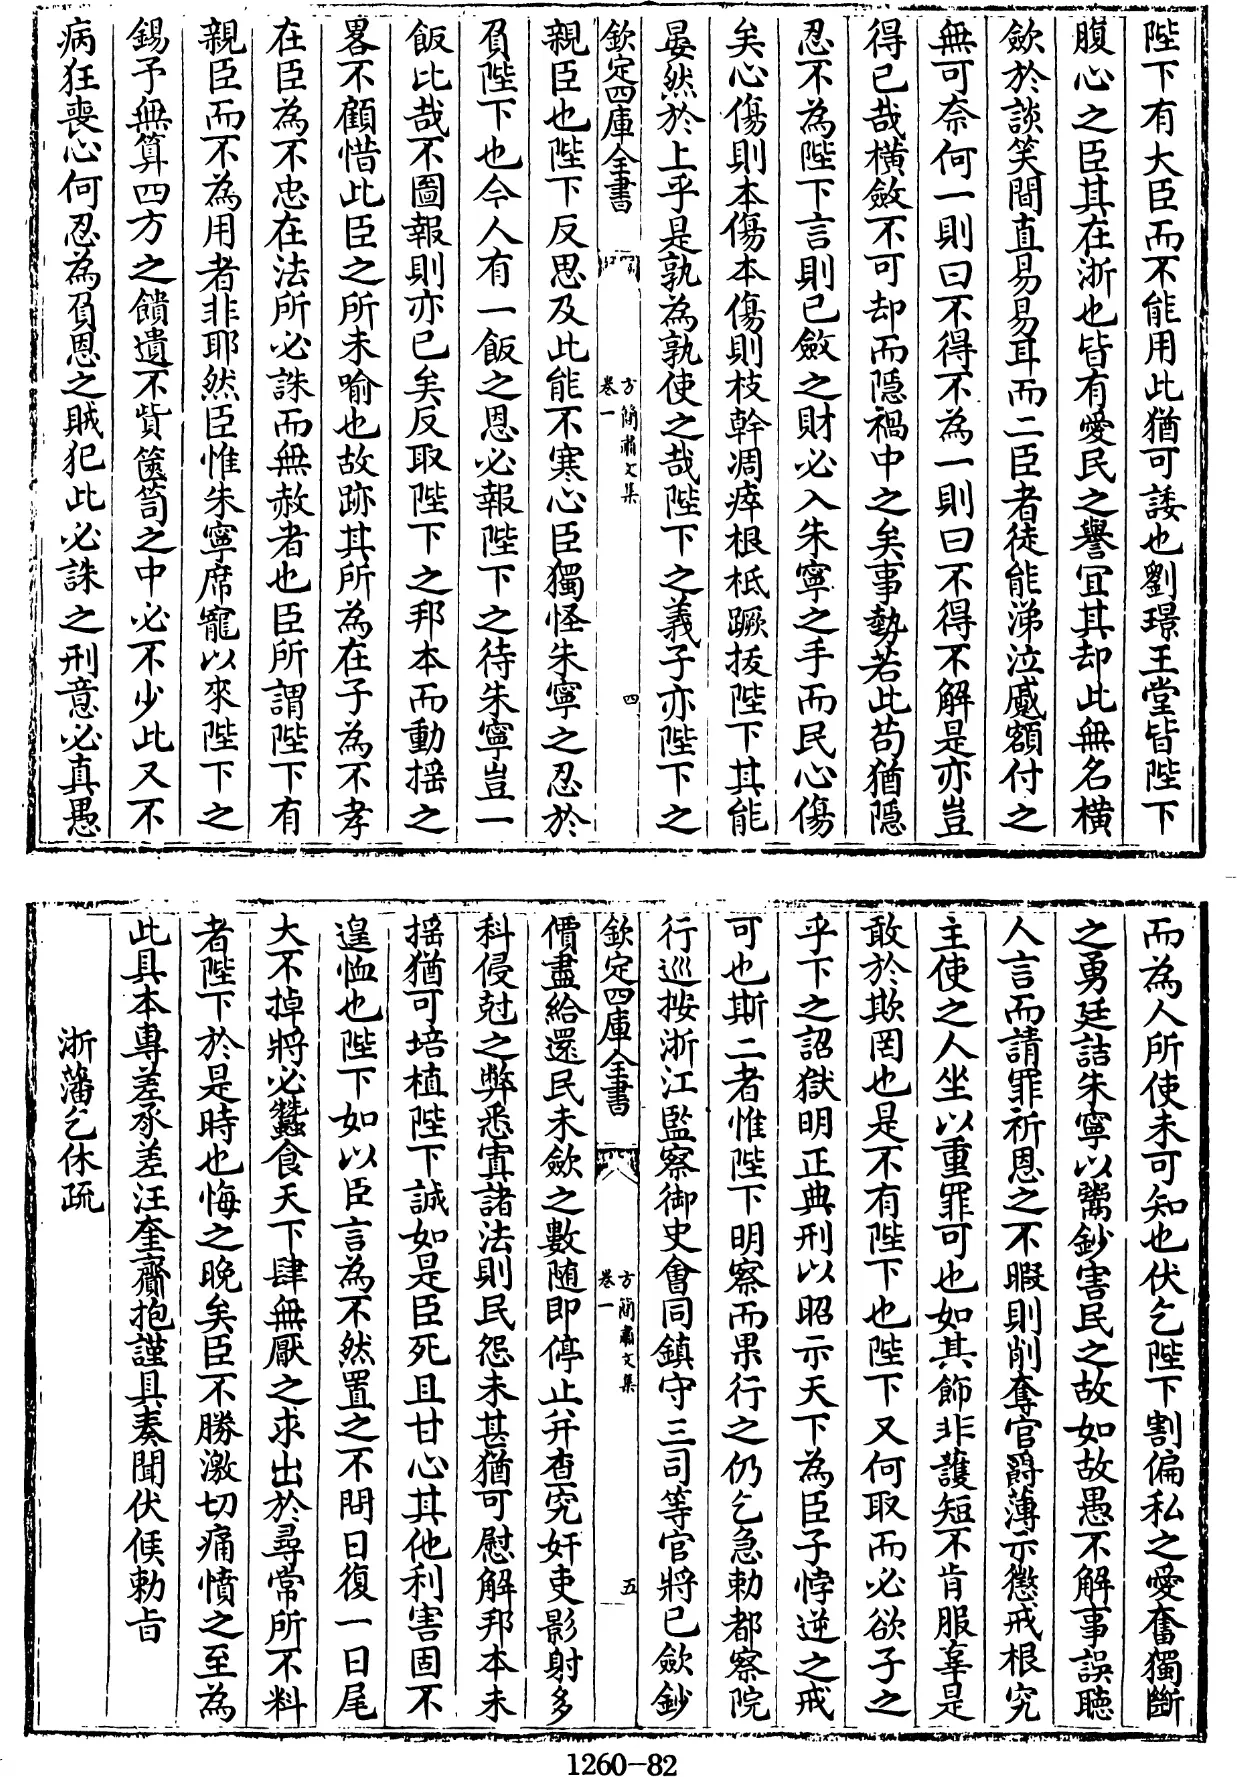 陛下有大臣而不能用此猶可諉也劉璟王堂皆陛下
腹心之臣其在浙也皆有愛民之譽宜其却此無名橫
斂於談笑間直易易耳而二臣者徒能涕泣蹙額付之
無可奈何一則曰不得不為一則曰不得不解是亦豈
得已哉橫斂不可却而隱禍中之矣事勢若此苟猶隱
忍不為陛下言則已斂之財必入朱寧之手而民心傷
矣心傷則本傷本傷則枝幹凋瘁根柢蹶拔陛下其能
晏然於上乎是孰為孰使之哉陛下之義子亦陛下之
欽定四庫全書
方簡肅文集
卷一
四
親臣也陛下反思及此能不寒心臣獨怪朱寧之忍於
負陛下也今人有一飯之恩必報陛下之待朱寧豈一
飯比哉不圖報則亦已矣反取陛下之邦本而動揺之
畧不顧惜此臣之所未喻也故跡其所為在子為不孝
在臣為不忠在法所必誅而無赦者也臣所謂陛下有
親臣而不為用者非耶然臣惟朱寧席寵以來陛下之
錫予無算四方之饋遺不貲篋笥之中必不少此又不
病狂喪心何忍為負恩之賊犯此必誅之刑意必真愚
而為人所使未可知也伏乞陛下割偏私之愛奮獨斷
之勇廷詰朱寧以鬻鈔害民之故如故愚不解事誤聽
人言而請罪祈恩之不暇則削奪官爵薄示懲戒根究
主使之人坐以重罪可也如其飾非護短不肯服辜是
敢於欺罔也是不有陛下也陛下又何取而必欲子之
乎下之詔獄明正典刑以昭示天下為臣子悖逆之戒
可也斯二者惟陛下明察而果行之仍乞急勅都察院
行巡按浙江監察御史會同鎮守三司等官將已斂鈔
欽定四庫全書
方簡肅文集
卷一
五
價盡給還民未斂之數随即停止并查究奸吏影射多
科侵尅之弊悉寘諸法則民怨未甚猶可慰解邦本未
揺猶可培植陛下誠如是臣死且甘心其他利害固不
遑恤也陛下如以臣言為不然置之不問日復一日尾
大不掉將必蠶食天下肆無厭之求出於尋常所不料
者陛下於是時也悔之晚矣臣不勝激切痛憤之至為
此具本專差承差汪奎齎抱謹具奏聞伏候勅旨
浙藩乞休疏
1260-82